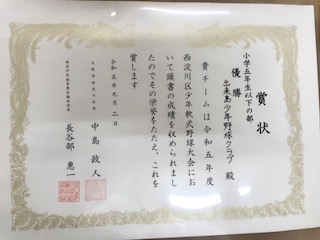 賞状
小学五年生以下の部
優勝
出来島少年野球クラブ 殿
貴チームは令和五年度
西淀川区少年軟式野球大会にお
いて頭書の成績を収められまし
たのでその栄誉をたたえ、これを
賞します
令和五年九月二日
中島政人
長谷部恵一